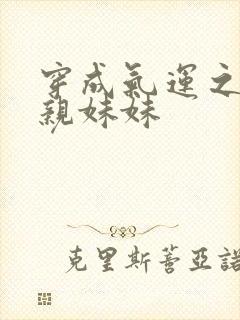 穿成氣運之
親妹妹
克里斯蒼亞諾